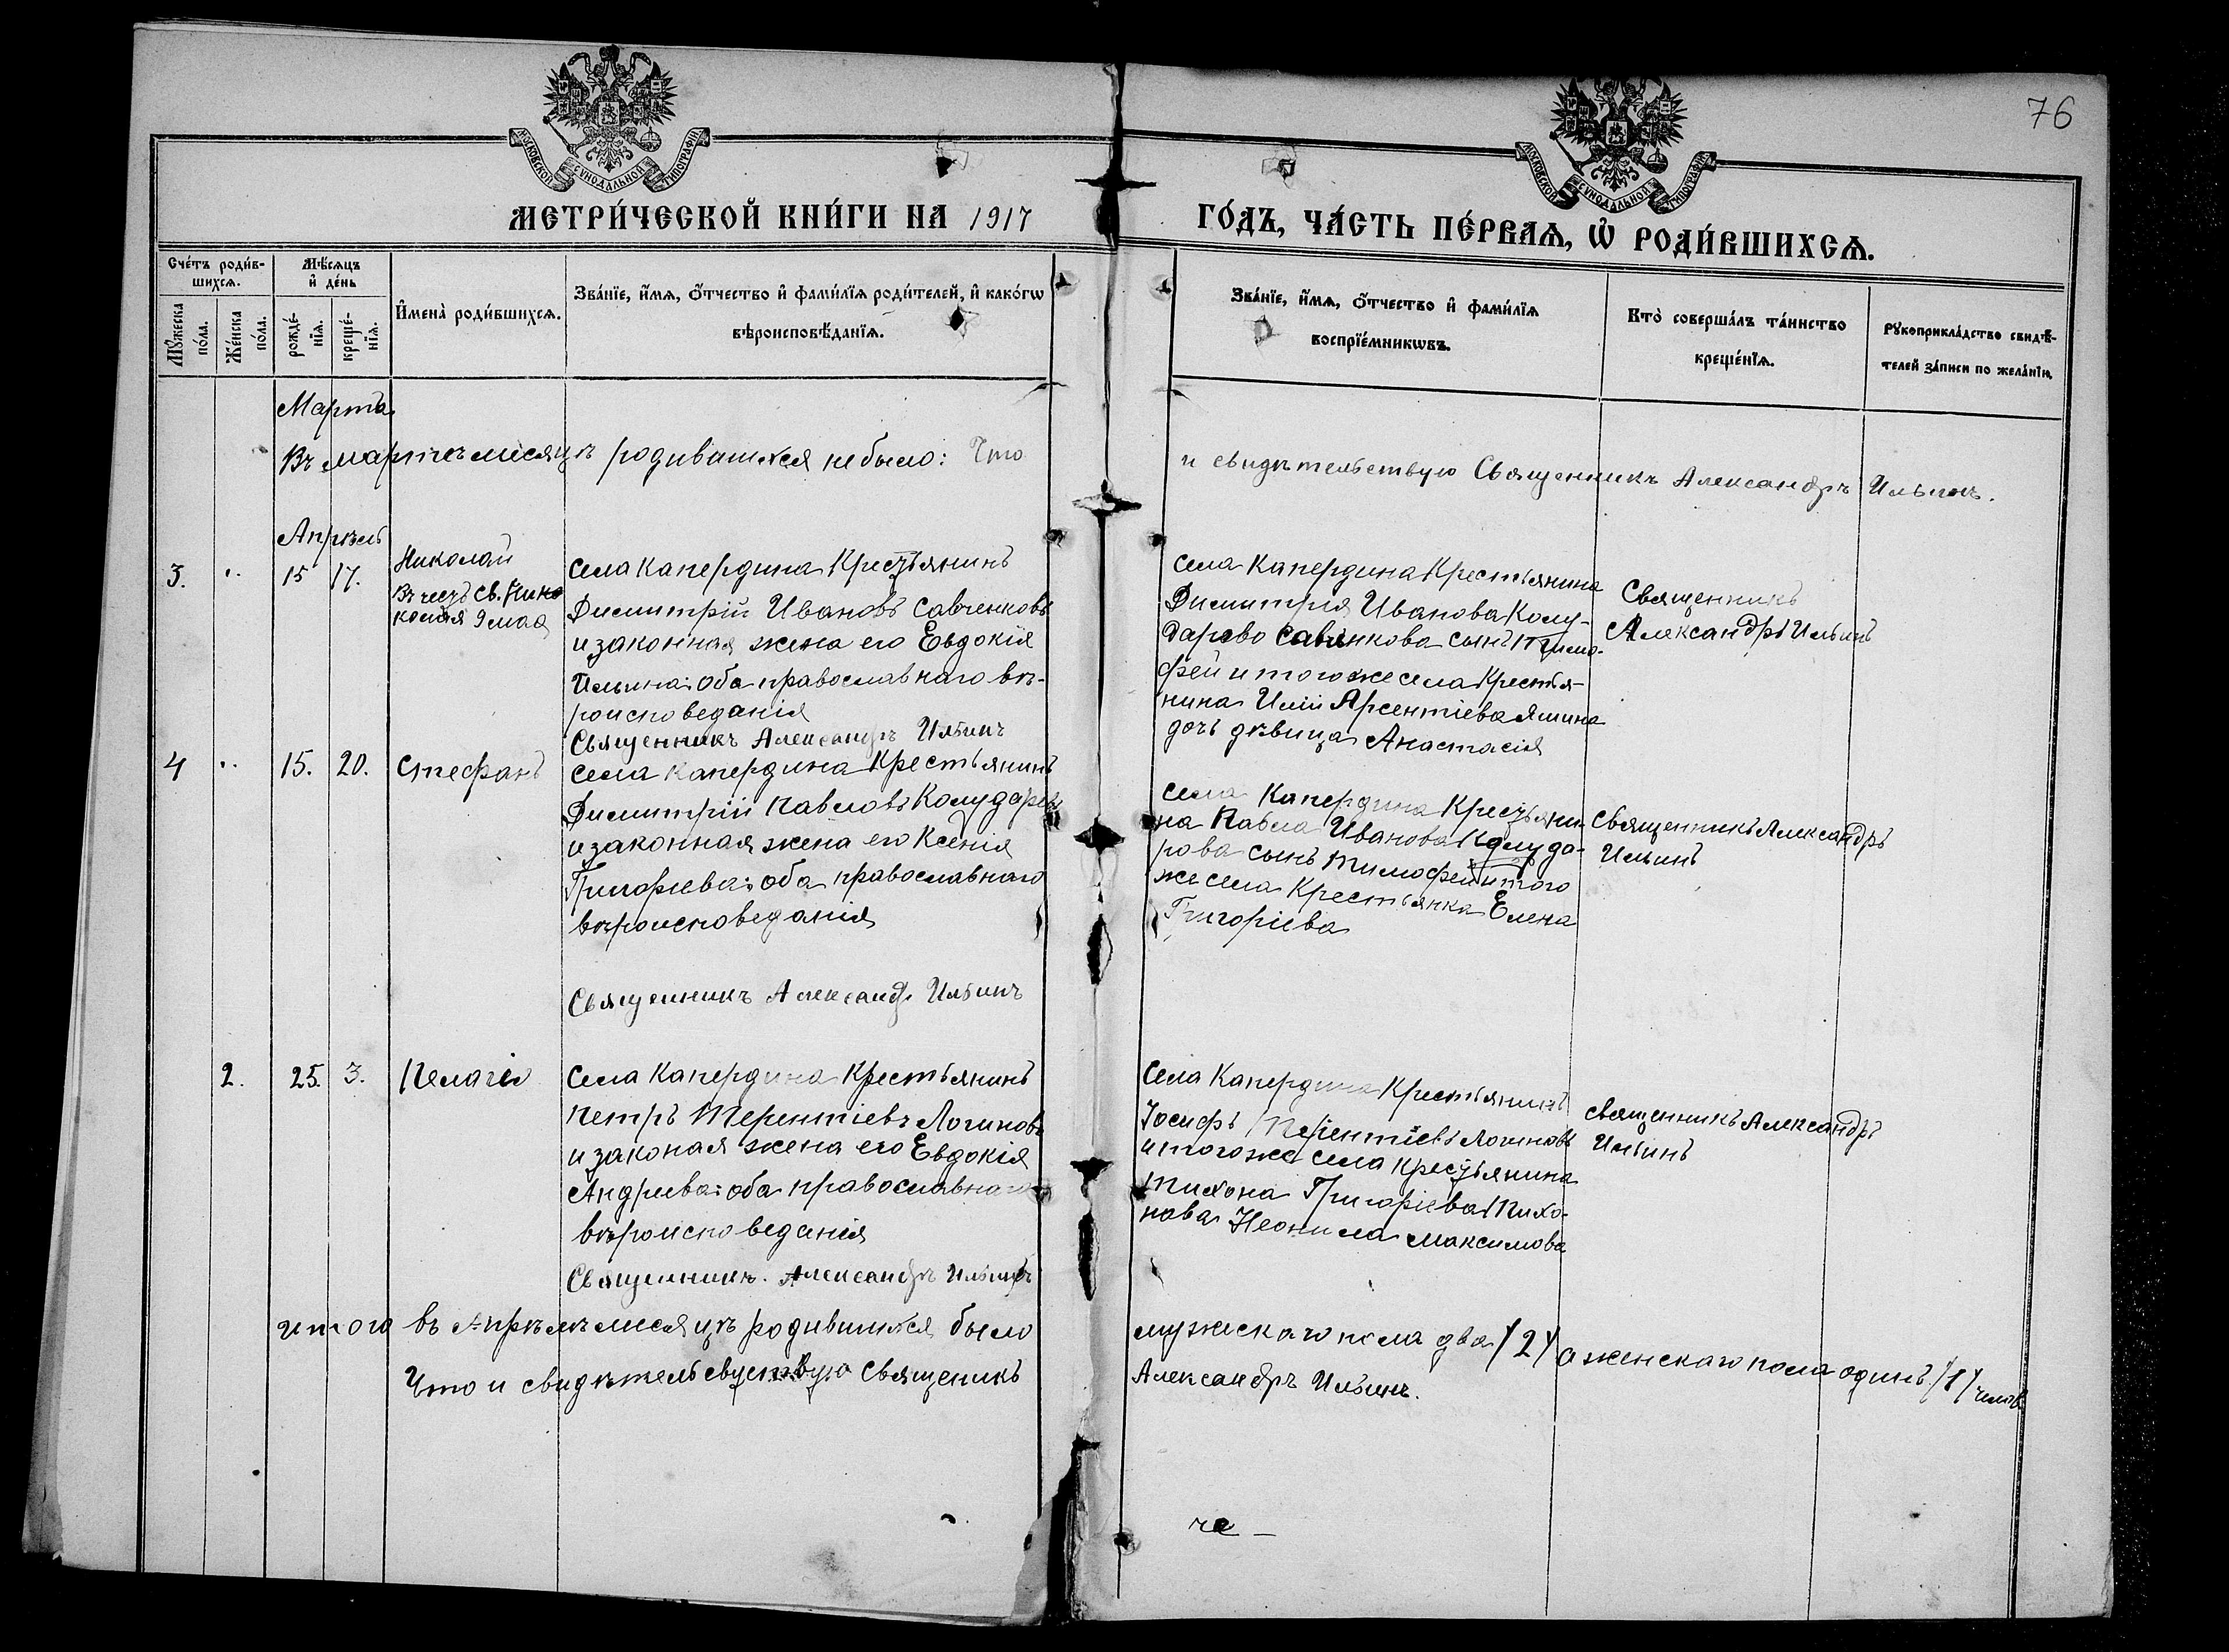 76
МОСКОВСКОЙ СѴНОДАЛЬНОЙ ТИПОГРАФІИ
МОСКОВСКОЙ СѴНОДАЛЬНОЙ ТИПОГРАФІИ
МЕТРИ́ЧЕСКОЙ КНИ́ГИ НА 1917
ГО́ДЪ, ЧА́СТЬ ПЕ́РВАѦ, Ѡ҆ РОДИ́ВШИХСѦ.
Сче́тъ роди́в-
шихсѧ.
Мꙋ́жеска
по́ла.
Же́нска
по́ла.
Мѣ́сѧцъ
и҆ де́нь
рожде́-
нїѧ.
креще́-
нїѧ.
И҆мена̀ роди́вшихсѧ.
Зва́нїе, и҆́мѧ, ѻ҆́тчество и҆ фами́лїѧ роди́телей, и҆ како́гѡ
вѣроисповѣ́данїѧ.
Зва́нїе, и҆́мѧ, ѻ҆́тчество и҆ фами́лїѧ
воспрїе́мникѡвъ.
Кто̀ соверша́лъ та́инство
креще́нїѧ.
Рꙋкоприкла́дство свидѣ́-
телей за́писи по жела́нїю.
Мартъ
Въ мартѣ месяцѣ родившихся не было: Что
и свидѣтельствую Священникъ Александръ Ильинъ.
Апрѣль
3. " 15 17.
Николай
Въ честь св. Нико
колая 9 мая
села Капердина Крестьянинъ
Димитрій Ивановъ Савченковъ
и законная жена его Евдокія
Ильина: оба православнаго вѣ-
роисповеданія
Священникъ Александръ Ильинъ
села Капердина Крестьянина
Димитрія Иванова Колу-
дарово Савченкова сынъ Тимо-
фей и того же села Крестья-
нина Иліи Арсентіева Яшина
дочь дѣвица Анастасія
Священникъ
Александръ Ильинъ
4 " 15. 20. Стефанъ
села Капердина Крестьянинъ
Димитрій Павловъ Колударовъ
и законная жена его Ксенія
Григорьева: оба православнаго
вѣроисповеданія
Священникъ Александръ Ильинъ
села Капердина Крестьяни-
на Павла Иванова Колуда-
рова сынъ Тимофей и того
же села Крестьянка Елена
Григоріева
Священникъ Александръ
Ильинъ
2. 25. 3. Пелагія
Села Капердина Крестьянинъ
Петръ Терентіевъ Логиновъ
и законая жена его Евдокія
Андреева: оба православнаго
вѣроисповеданія
Священникъ. Александръ Ильинъ
Села Капердина Крестьянинъ
Іосифъ Терентіевъ Логиновъ
и того же села крестьянина
Тихона Григоріева Тихо-
нова Неонила Максимова
священникъ Александръ
Ильинъ
итого въ Апрѣлѣ месяцѣ родившихся было
мужескаго пола два /2/ а женскаго пола одинъ /1/ челов.
Что и свидѣтельсвуствую Священикъ
Александръ Ильинъ.